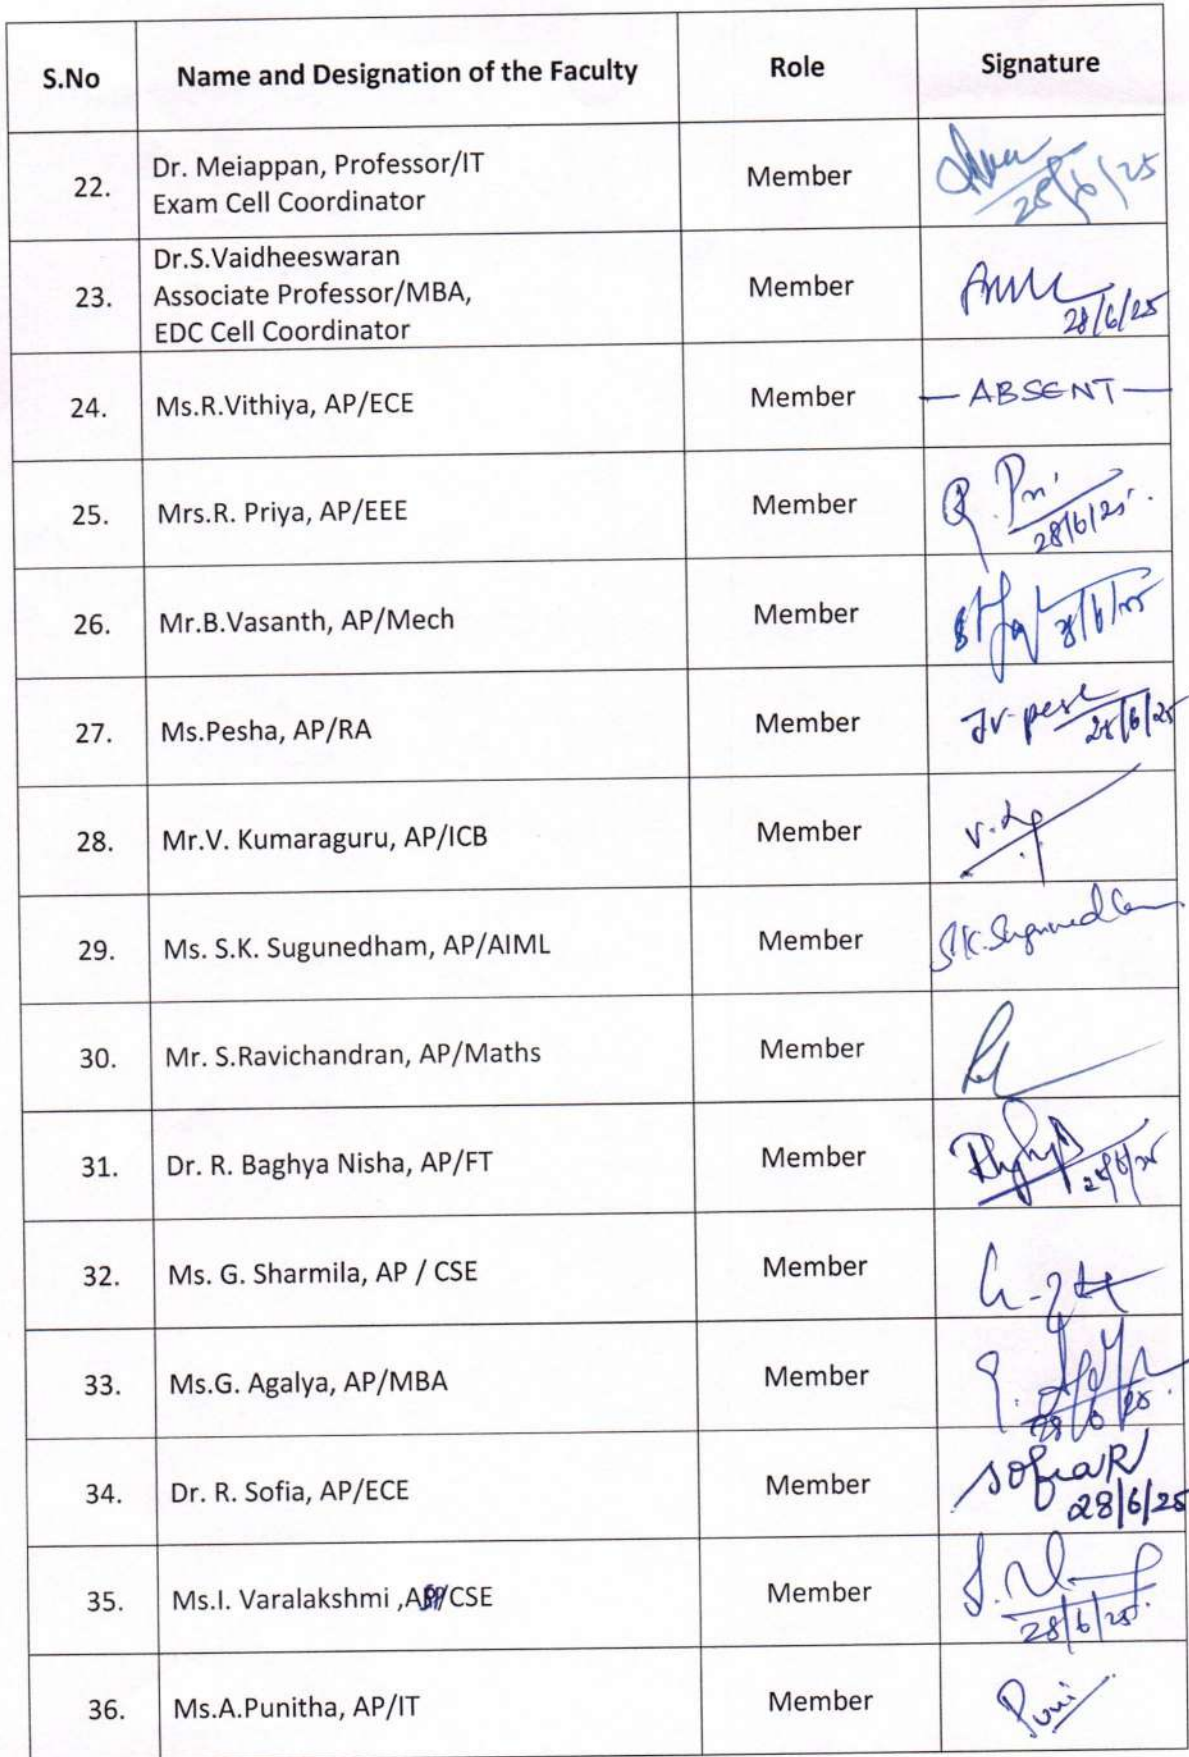 S.No Name and Designation of the Faculty Role Signature
22. Dr. Meiappan, Professor/IT Member
Exam Cell Coordinator 28/6/25
Dr.S.Vaidheeswaran
23. Associate Professor/MBA, Member
EDC Cell Coordinator 28/6/25
24. Ms.R.Vithiya, AP/ECE Member — ABSENT —
25. Mrs.R. Priya, AP/EEE Member
28/6/25
26. Mr.B.Vasanth, AP/Mech Member
27. Ms.Pesha, AP/RA Member
28/6/25
28. Mr.V. Kumaraguru, AP/ICB Member
29. Ms. S.K. Sugunedham, AP/AIML Member
30. Mr. S.Ravichandran, AP/Maths Member
31. Dr. R. Baghya Nisha, AP/FT Member
28/6/25
32. Ms. G. Sharmila, AP / CSE Member
33. Ms.G. Agalya, AP/MBA Member
28/6/25
34. Dr. R. Sofia, AP/ECE Member SofiaR
28/6/25
35. Ms.I. Varalakshmi , /CSE Member
28/6/25
36. Ms.A.Punitha, AP/IT Member